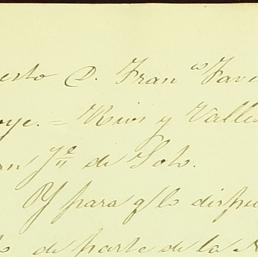 esto D. Fran.co Favi
oye. = Rius y Valle
an J.e de Soto.
Y para q.e lo dispu
de parte de la